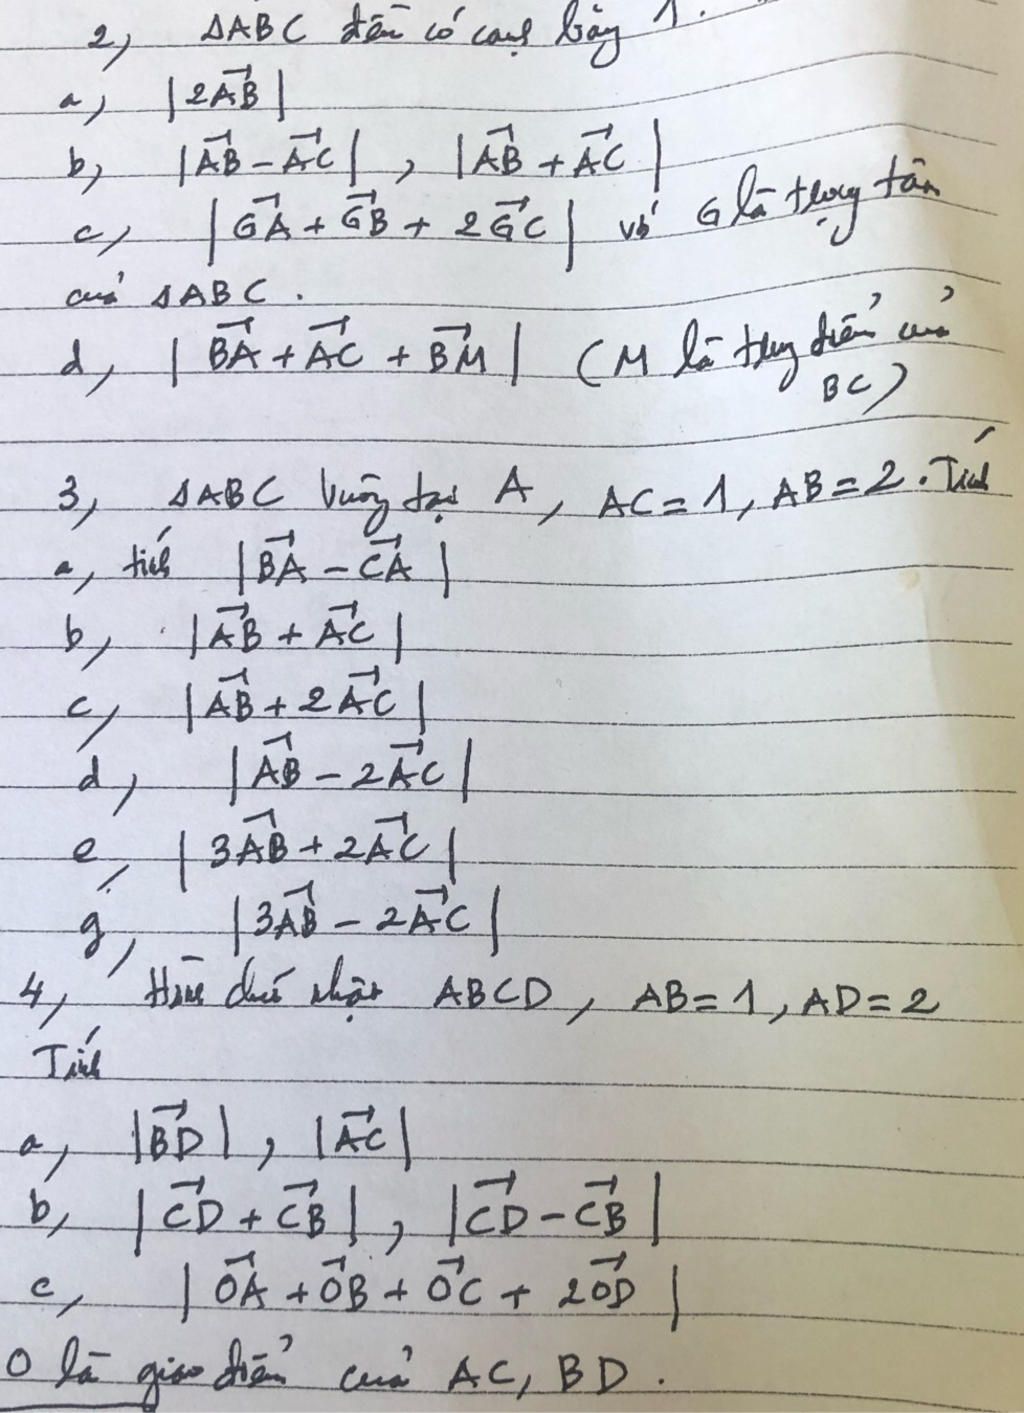 2, ΔABC đều có cạnh bằng 1.
a, |2\overrightarrow{AB}|
b, |\overrightarrow{AB} - \overrightarrow{AC}| , |\overrightarrow{AB} + \overrightarrow{AC}|
c, |\overrightarrow{GA} + \overrightarrow{GB} + 2\overrightarrow{GC}| với G là trọng tâm
của ΔABC.
d, |\overrightarrow{BA} + \overrightarrow{AC} + \overrightarrow{BM}| (M là trung điểm của
BC)
3, ΔABC vuông tại A, AC = 1, AB = 2. Tính
a, tính |\overrightarrow{BA} - \overrightarrow{CA}|
b, |\overrightarrow{AB} + \overrightarrow{AC}|
c, |\overrightarrow{AB} + 2\overrightarrow{AC}|
d, |\overrightarrow{AB} - 2\overrightarrow{AC}|
e, |3\overrightarrow{AB} + 2\overrightarrow{AC}|
g, |3\overrightarrow{AB} - 2\overrightarrow{AC}|
4, Hình chữ nhật ABCD, AB = 1, AD = 2
Tính
a, |\overrightarrow{BD}| , |\overrightarrow{AC}|
b, |\overrightarrow{CD} + \overrightarrow{CB}| , |\overrightarrow{CD} - \overrightarrow{CB}|
c, |\overrightarrow{OA} + \overrightarrow{OB} + \overrightarrow{OC} + 2\overrightarrow{OD}|
O là giao điểm của AC, BD.